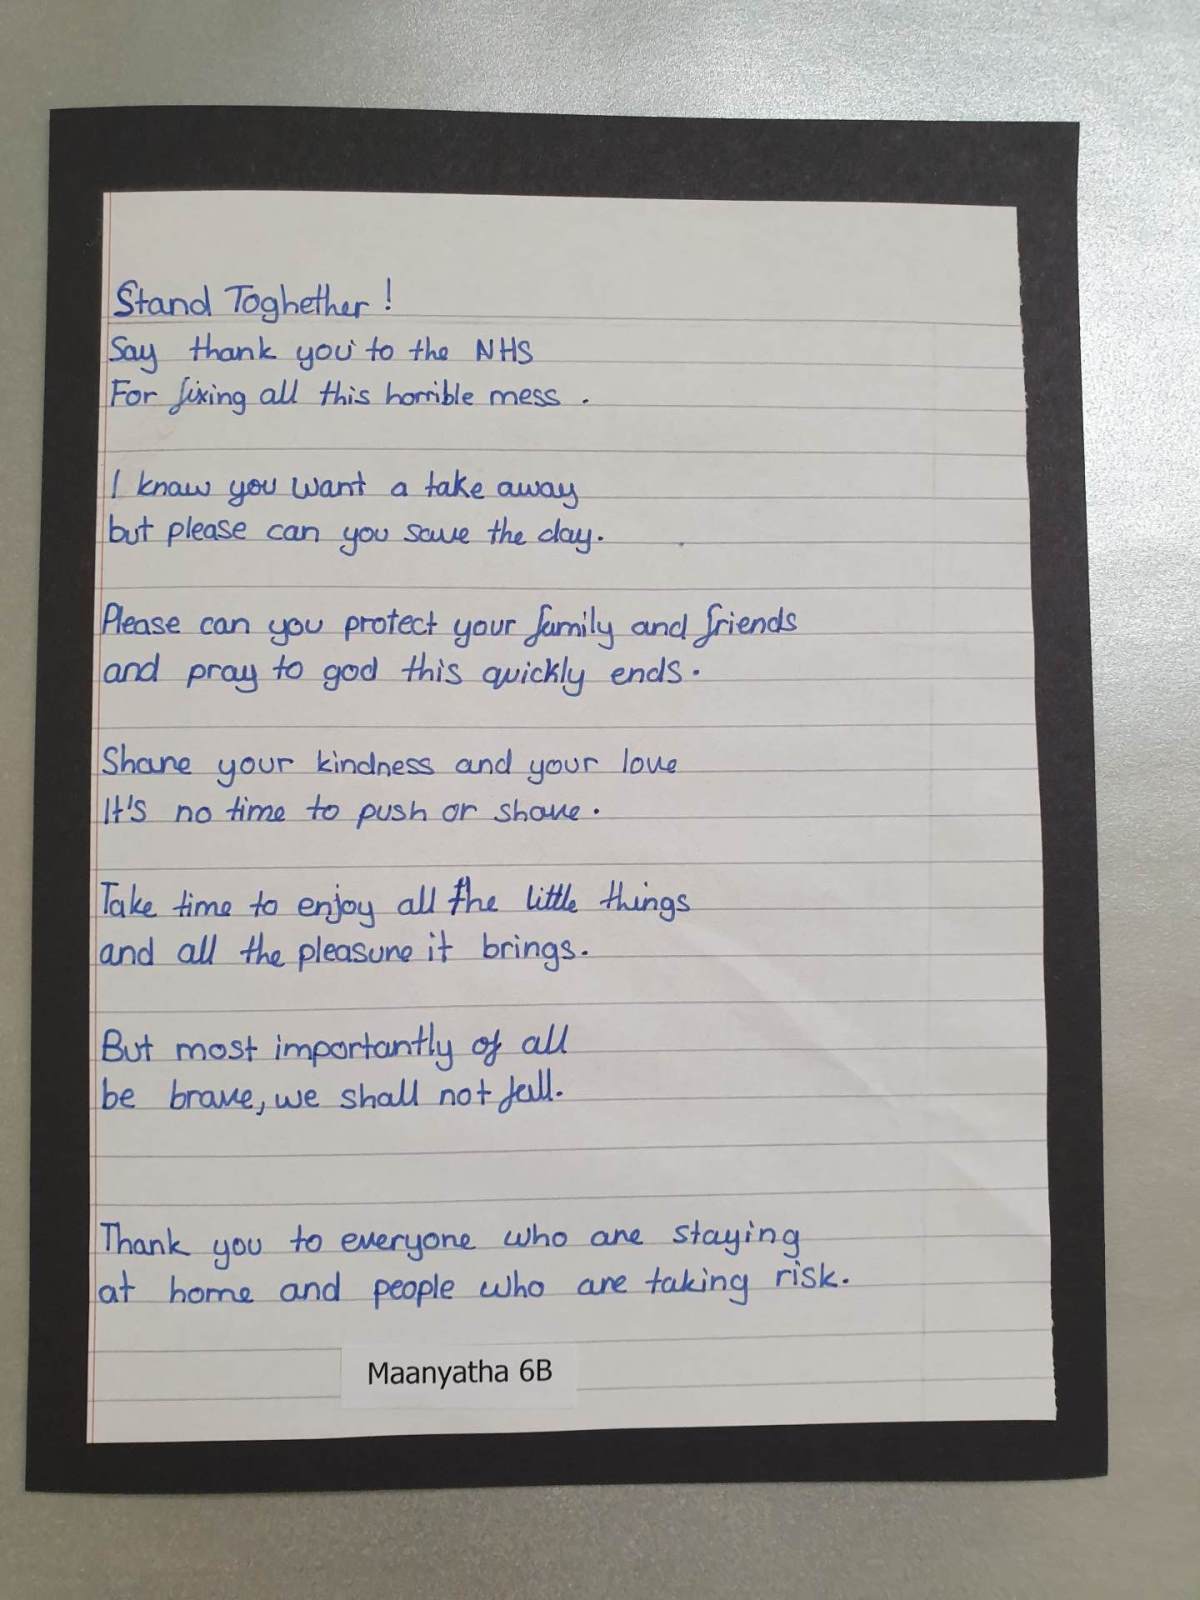 Stand Toghether!
Say thank you to the NHS
For fixing all this horrible mess.
I know you want a take away
but please can you save the day.
Please can you protect your family and friends
and pray to god this quickly ends.
Share your kindness and your love
It's no time to push or shove.
Take time to enjoy all the little things
and all the pleasure it brings.
But most importantly of all
be brave, we shall not fall.
Thank you to everyone who are staying
at home and people who are taking risk.
Maanyatha 6B